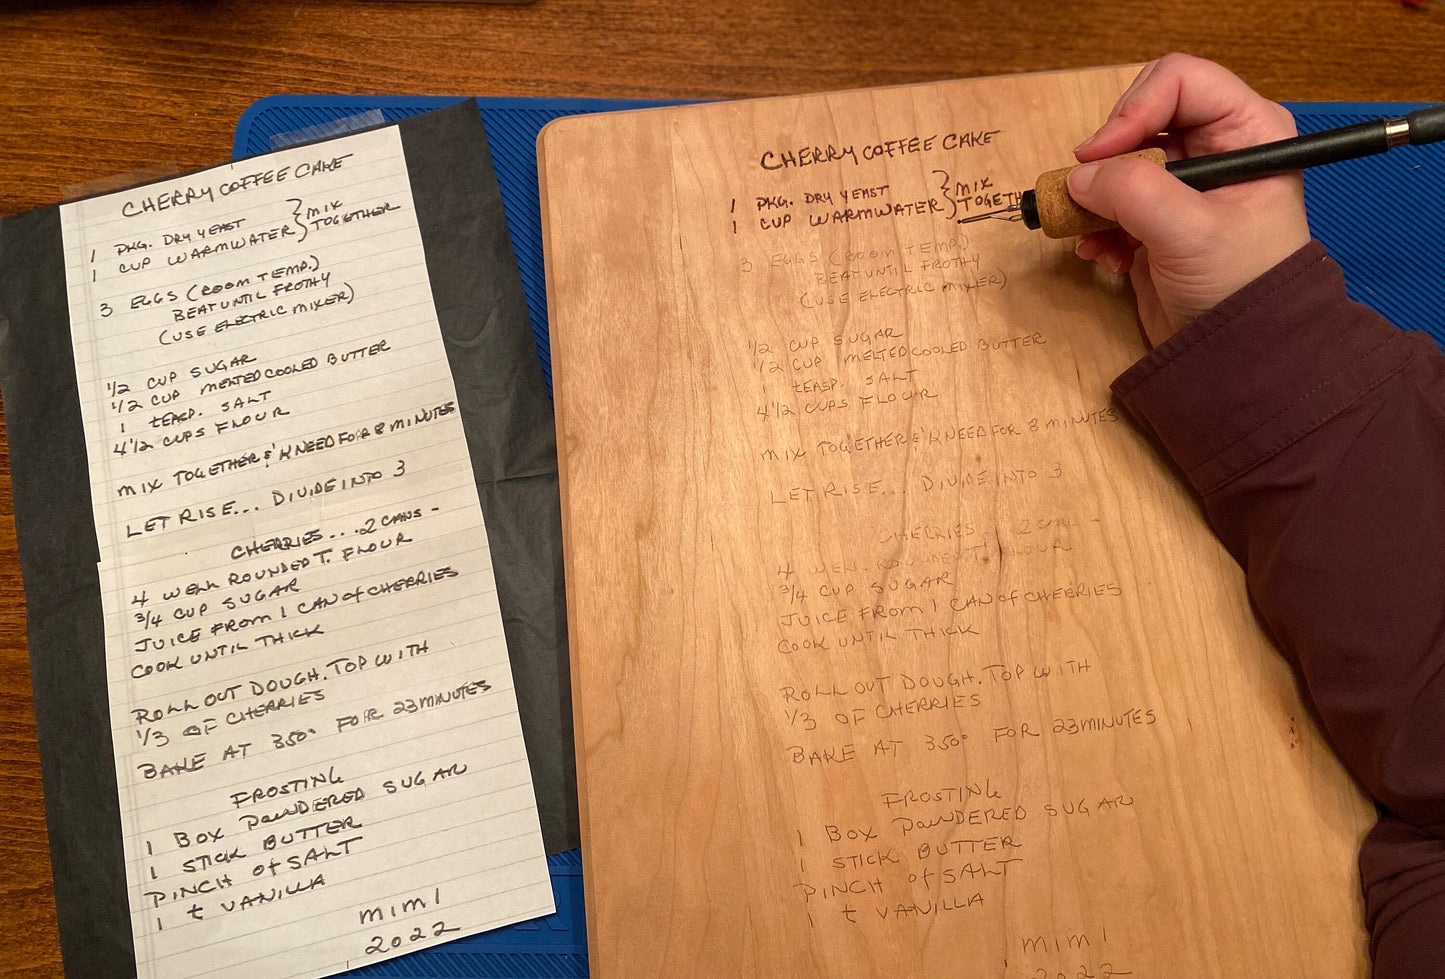 CHERRY COFFEE CAKE
1 PKG. DRY YEAST } MIX
1 CUP WARM WATER } TOGETHER
3 EGGS (ROOM TEMP.)
BEAT UNTIL FROTHY
(USE ELECTRIC MIXER)
1/2 CUP SUGAR
1/2 CUP MELTED COOLED BUTTER
1 tEASP. SALT
4 1/2 CUPS FLOUR
MIX TOGETHER & KNEED FOR 8 MINUTES
LET RISE... DIVIDE INTO 3
CHERRIES...2 CANS -
4 WELL ROUNDED T. FLOUR
3/4 CUP SUGAR
JUICE FROM 1 CAN of CHERRIES
COOK UNTIL THICK
ROLL OUT DOUGH. TOP WITH
1/3 OF CHERRIES
BAKE AT 350° FOR 23 MINUTES
FROSTING
1 BOX POWDERED SUGAR
1 STICK BUTTER
PINCH of SALT
1 t VANILLA
MIMI
2022
CHERRY COFFEE CAKE
1 PKG. DRY YEAST } MIX
1 CUP WARM WATER } TOGETH
3 EGGS (ROOM TEMP.)
BEAT UNTIL FROTHY
(USE ELECTRIC MIXER)
1/2 CUP SUGAR
1/2 CUP MELTED COOLED BUTTER
1 tEASP. SALT
4 1/2 CUPS FLOUR
MIX TOGETHER & KNEED FOR 8 MINUTES
LET RISE... DIVIDE INTO 3
CHERRIES...2 CANS -
4 WELL ROUNDED T. FLOUR
3/4 CUP SUGAR
JUICE FROM 1 CAN of CHERRIES
COOK UNTIL THICK
ROLL OUT DOUGH. TOP WITH
1/3 OF CHERRIES
BAKE AT 350° FOR 23 MINUTES
FROSTING
1 BOX POWDERED SUGAR
1 STICK BUTTER
PINCH of SALT
1 t VANILLA
MIMI
2022